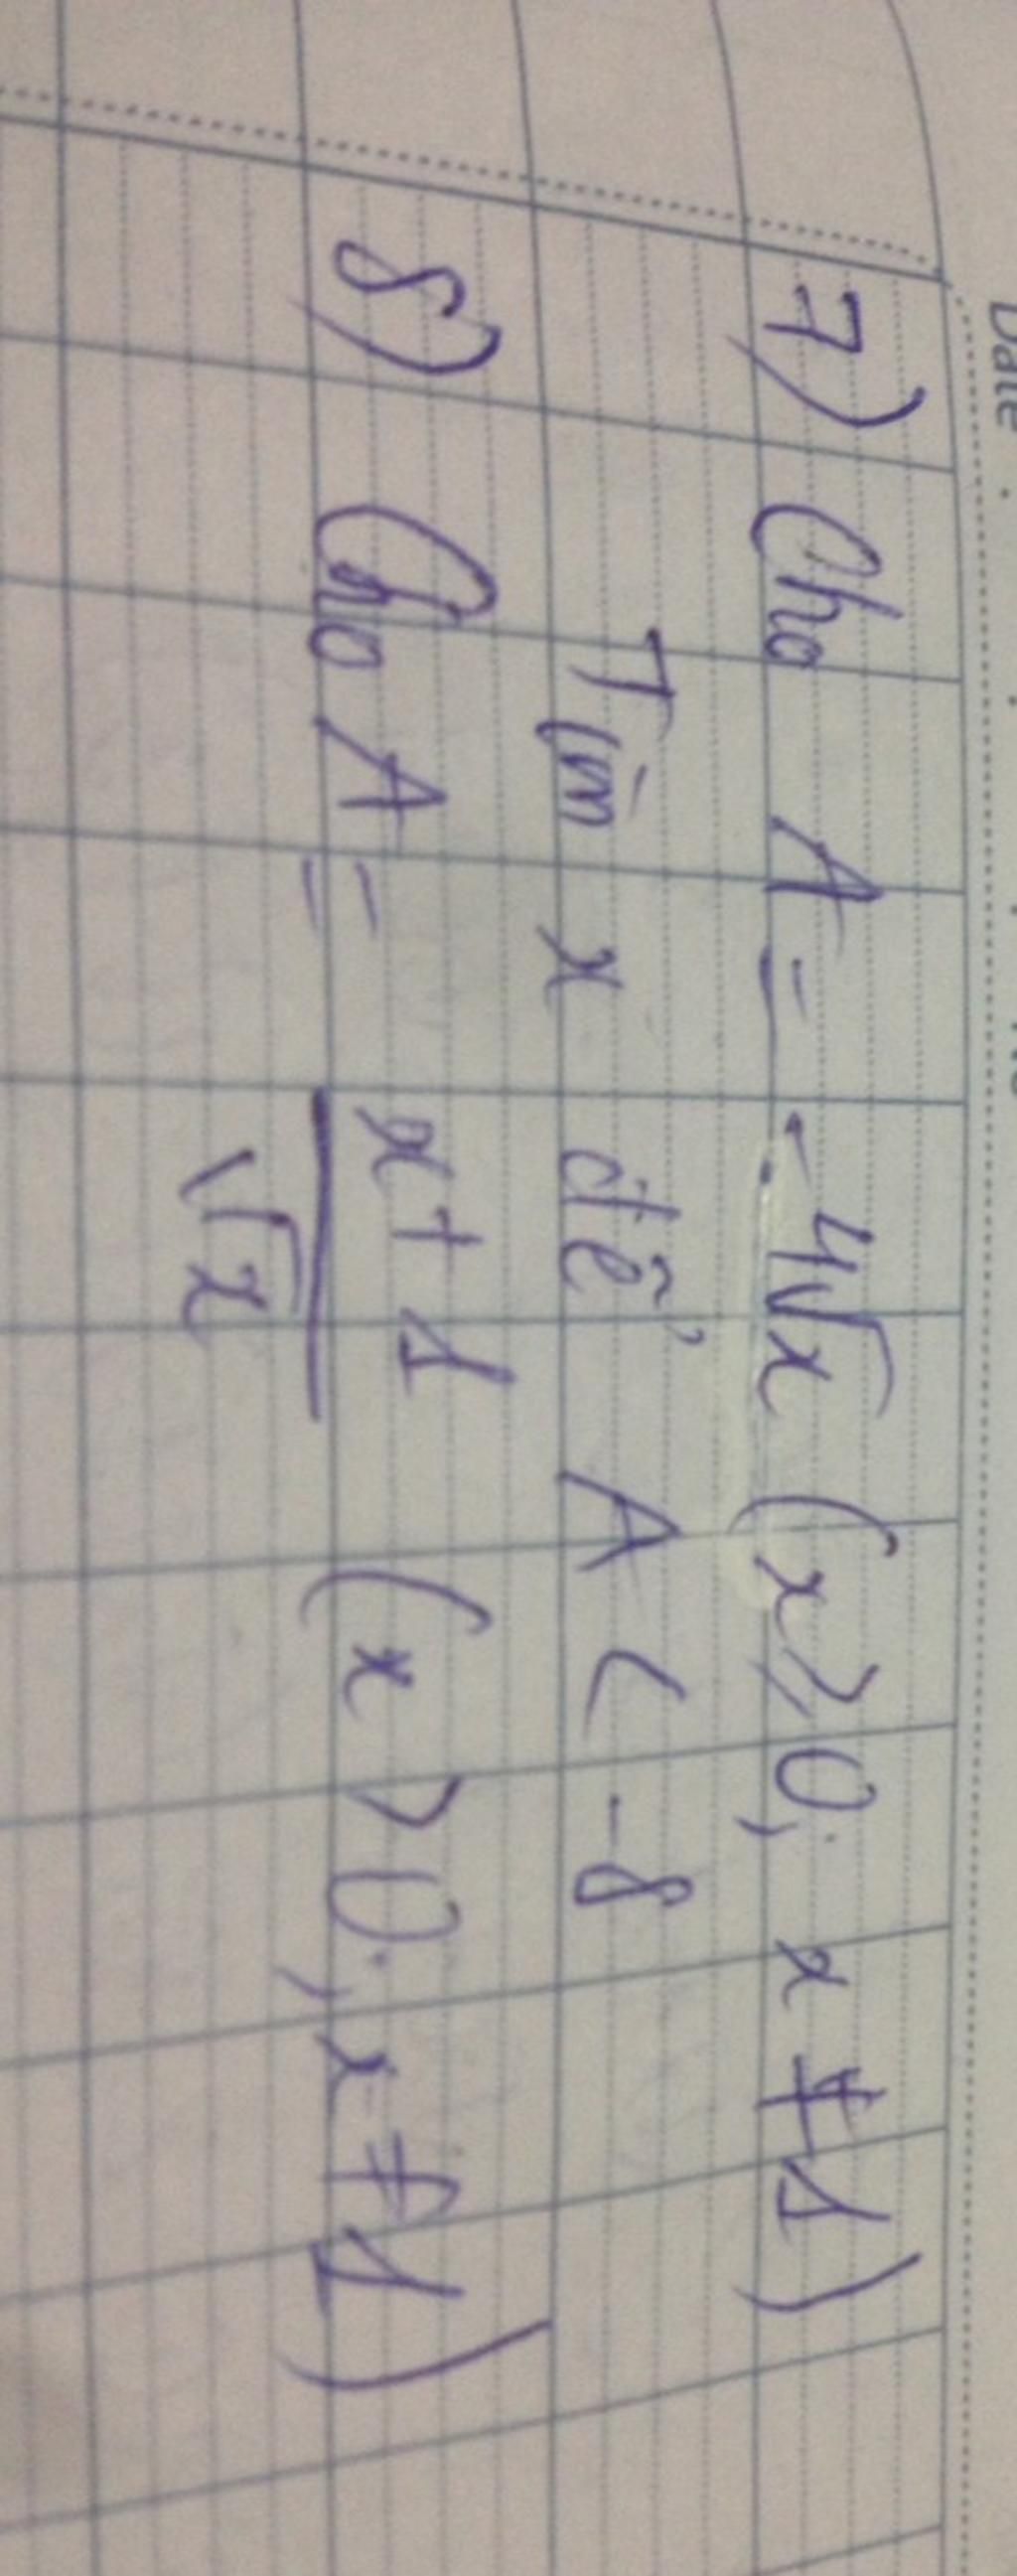 Date
No
7) Cho A = - 4√x (x ≥ 0; x ≠ 1)
Tìm x để A < -8
8) Cho A = x + 1 / √x (x > 0; x ≠ 1)